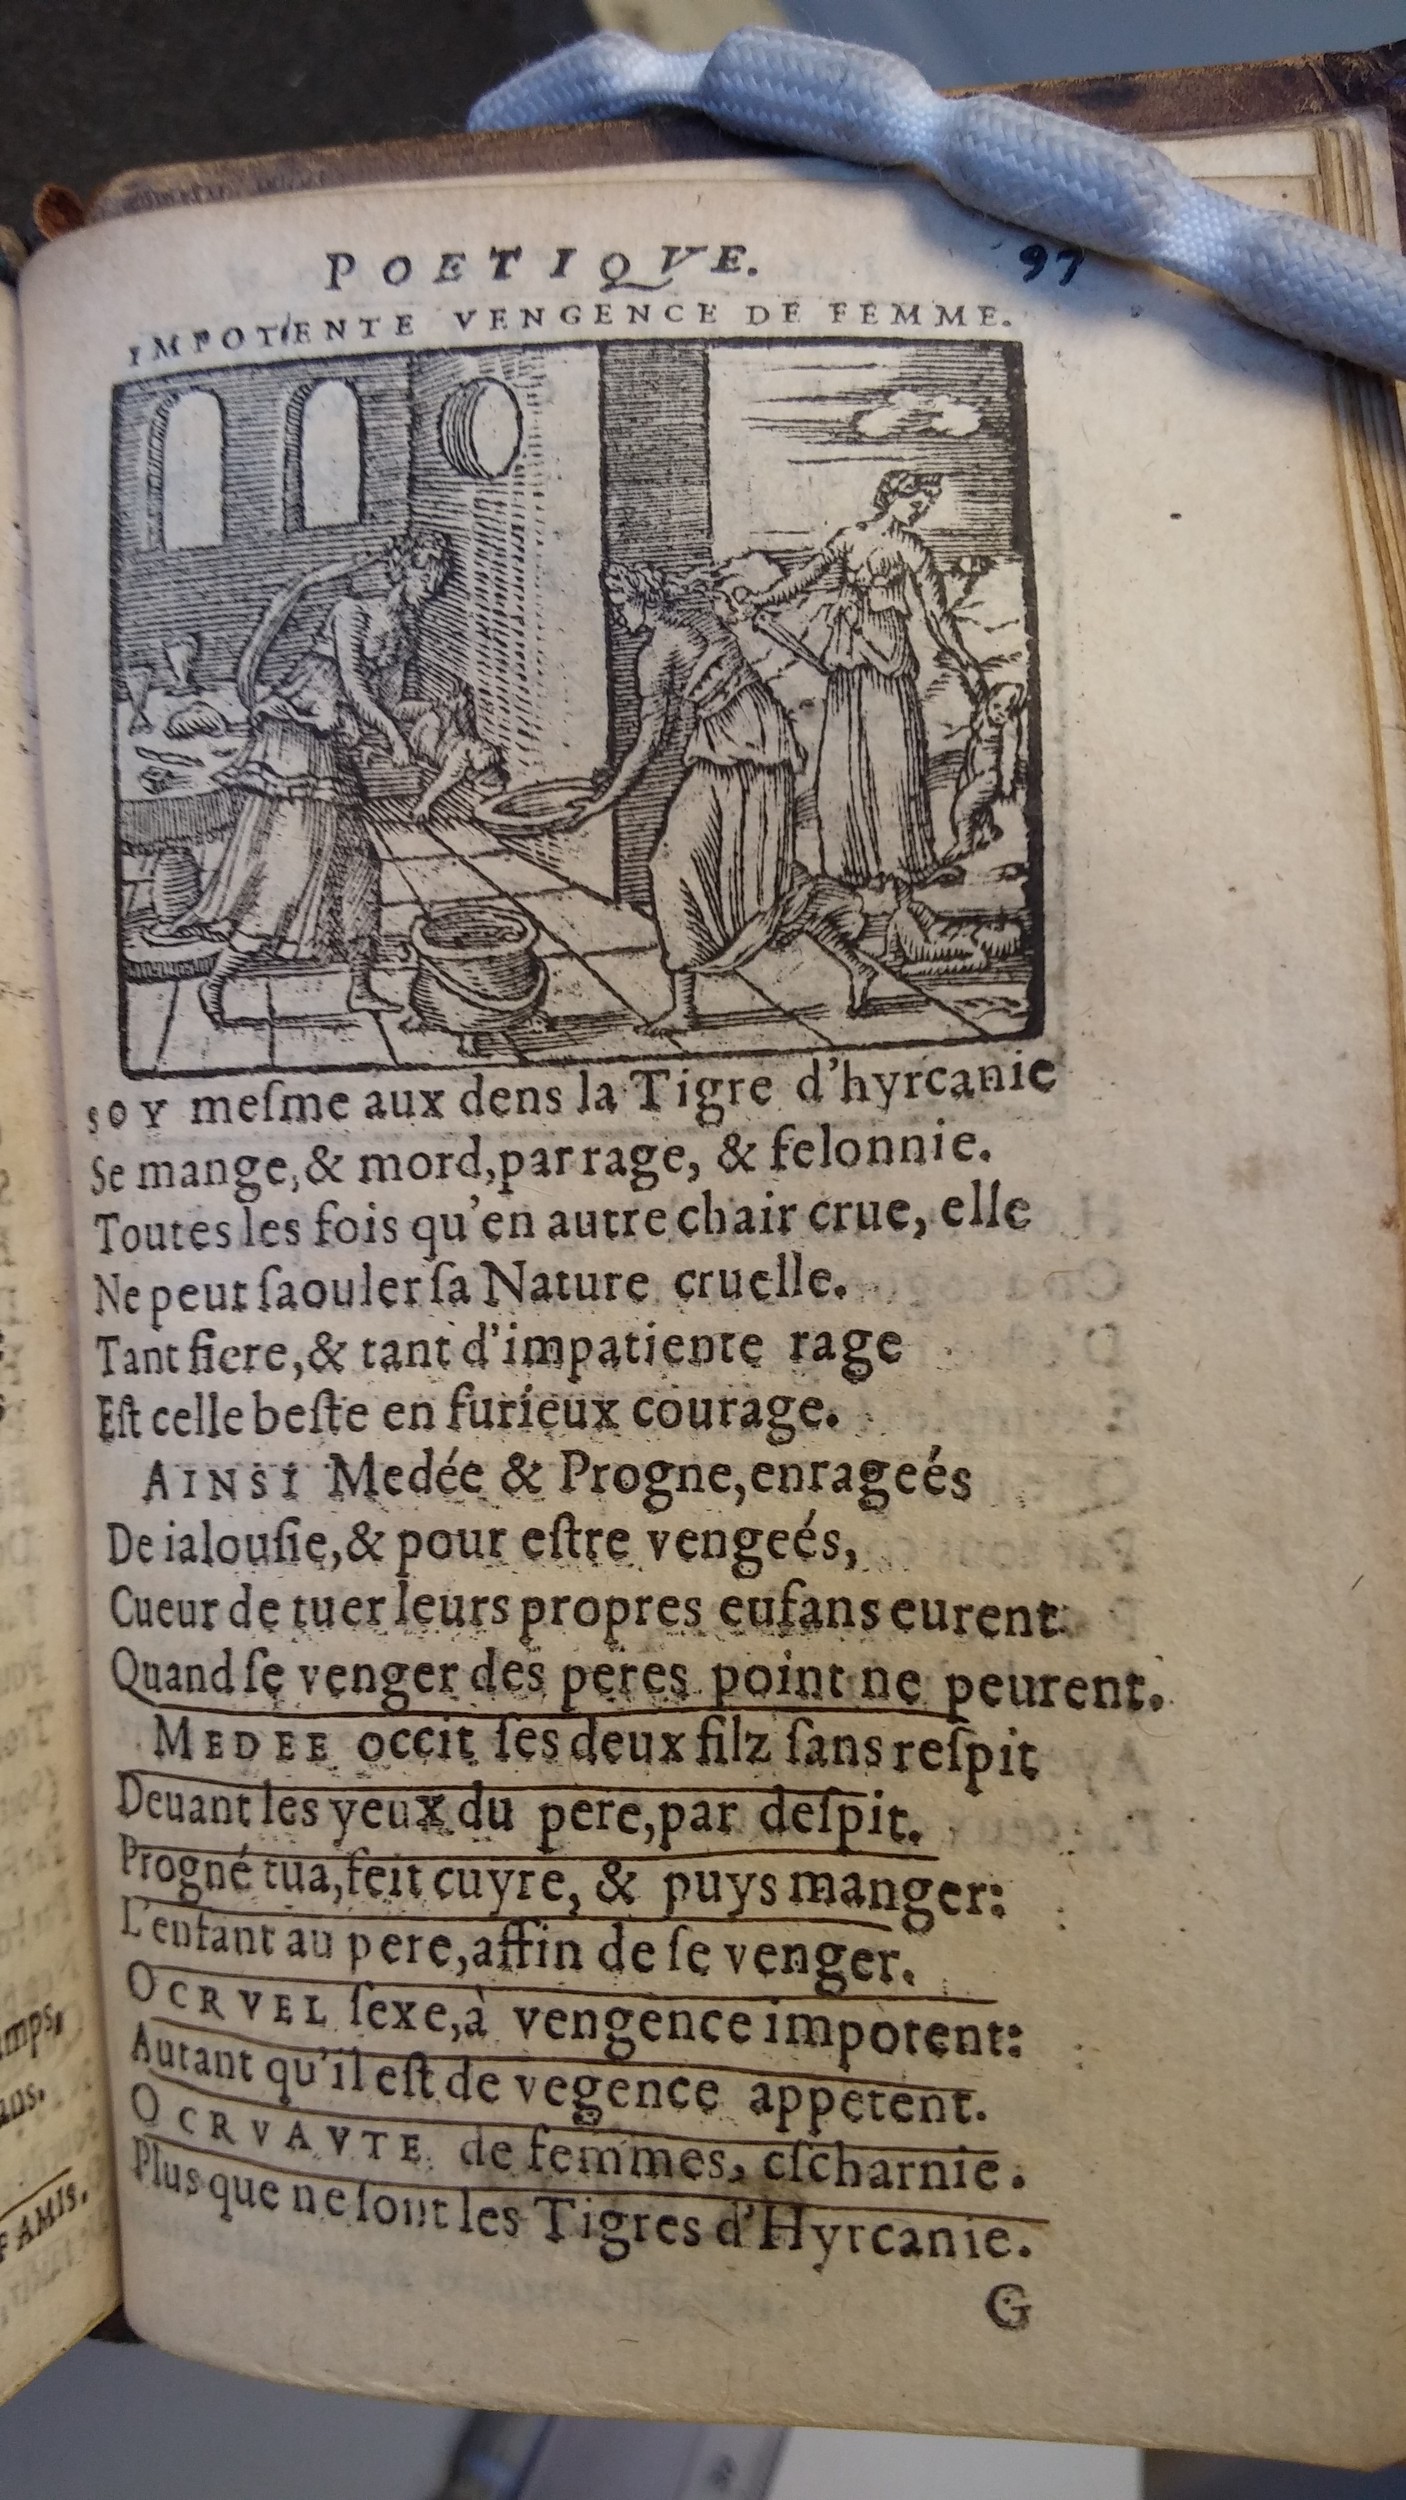 POETIQVE. 97
IMPOTENTE VENGENCE DE FEMME.
SOY meſme aux dens la Tigre d'hyrcanie
Se mange, & mord, par rage, & felonnie.
Toutes les fois qu'en autre chair crue, elle
Ne peut ſaouler ſa Nature cruelle.
Tant fiere, & tant d'impatiente rage
Eſt celle beſte en furieux courage.
AINSI Medée & Progne, enrageés
De ialouſie, & pour eſtre vengeés,
Cueur de tuer leurs propres eufans eurent
Quand ſe venger des peres point ne peurent.
MEDEE occit ſes deux filz ſans reſpit
Deuant les yeux du pere, par deſpit.
Progné tua, feit cuyre, & puys manger:
L'enfant au pere, affin de ſe venger.
O CRVEL ſexe, à vengence impotent:
Autant qu'il eſt de vegence appetent.
O CRVAVTE de femmes, eſcharnie.
Plus que ne ſont les Tigres d'Hyrcanie.
G
amps,
ans.
F AMIS.